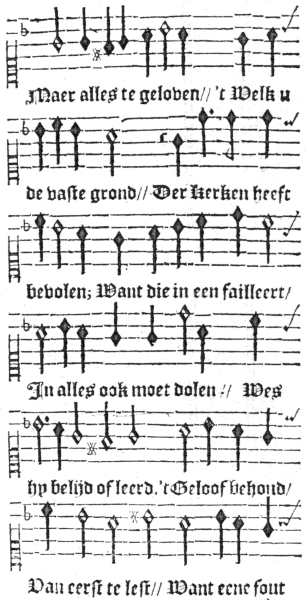 Maer alles te geloven// 't Welk u
de vaste grond// Der Kerken heeft
bevolen; Want die in een failleert/
In alles ook moet dolen // Wes
hy belijd of leerd, 't Geloof behoud/
Van eerst te lest// Want eene fout